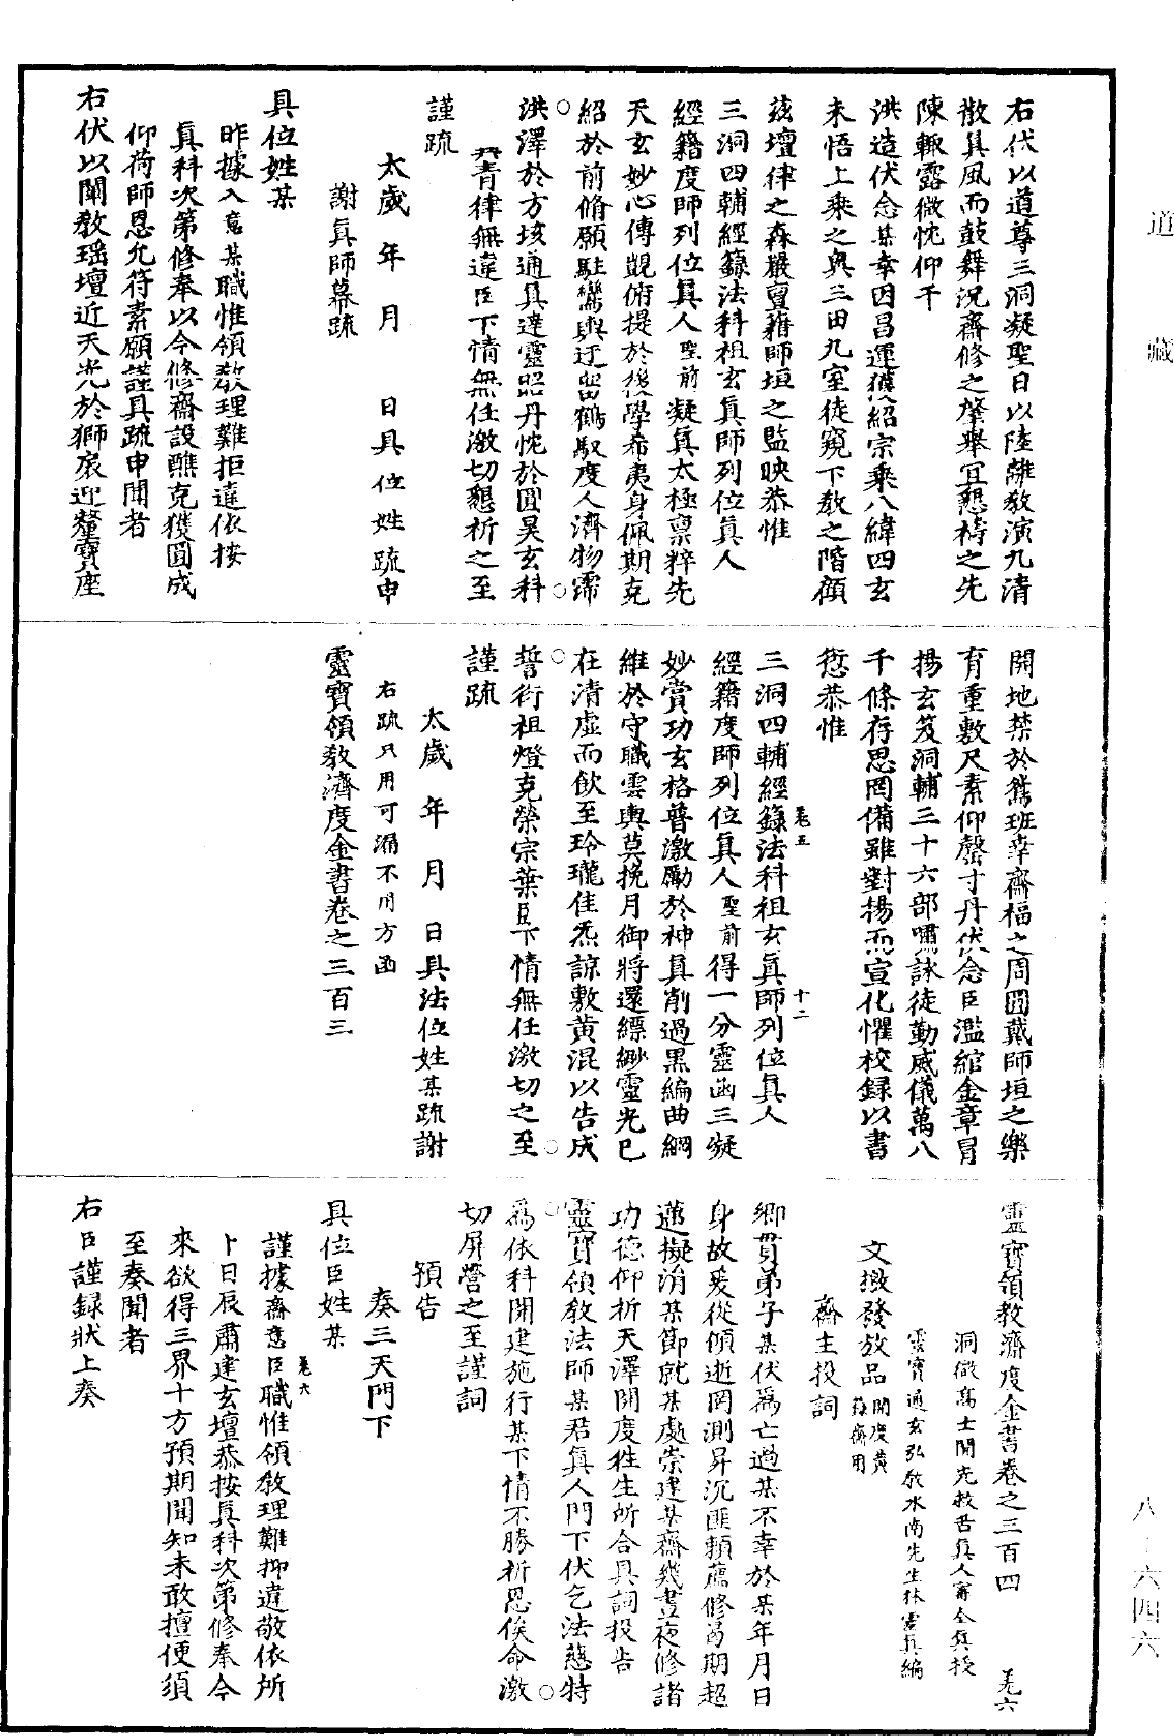 道藏
右伏以道尊三洞凝聖日以陸離教演九清
散真風而鼓舞況齋修之肇舉宜懇禱之先
陳輒露微忱仰干
洪造伏念某幸因昌運獲紹宗乘八緯四玄
未悟上乘之奥三田九室徒窺下教之階顧
玆壇律之森嚴亶藉師垣之監映恭惟
三洞四輔經籙法科祖玄真師列位真人
經籍度師列位真人聖前凝真太極禀粹先
天玄妙心傳覬俯提於後學希夷身佩期克
紹於前脩願駐鸞輿迂留鶴馭度人濟物霈
洪澤於方垓通真達靈昭丹忱於圓昊玄科
青律無違臣下情無任激切懇祈之至
謹疏
太歲 年 月 日具位姓疏申
謝真師幕疏
具位姓某
昨據入意某職惟領教理難拒違依按
真科次第修奉以今修齋設醮克獲圓成
仰荷師恩允符素願謹具疏申聞者
右伏以闡教瑶壇近天光於獅座迎釐寶座
開地禁於鵷班幸齋福之周圓戴師垣之樂
育重敷尺素仰罄寸丹伏念臣濫綰金章冒
揚玄笈洞輔三十六部嘯詠徒勤威儀萬八
千條存思罔備雖對揚而宣化懼校録以書
愆恭惟
三洞四輔經籙法科祖玄真師列位真人
經籍度師列位真人聖前得一分靈函三凝
妙賞功玄格普激勵於神真削過黑編曲綱
維於守職雲輿莫挽月御將還縹緲靈光已
在清虛而飲至玲瓏佳炁諒敷黄混以告成
誓衍祖燈克榮宗葉臣下情無任激切之至
謹疏
太歲 年 月 日具法位姓某疏謝
右疏只用可漏不用方函
靈寶領教濟度金書卷之三百三
卷五 十二
靈寶領教濟度金書卷之三百四 卷六
洞微高士開光救苦真人甯全真授
靈寶通玄弘教水南先生林靈真編
文檄發放品開度黄籙齋用
齋主投詞
鄉貫弟子某伏爲亡過某不幸於某年月日
身故爰從傾逝罔測昇沉匪賴薦修曷期超
邁擬消某節就某處崇建某齋幾晝夜修諸
功德仰祈天澤開度徃生所合具詞投告
靈寶領教法師某君真人門下伏乞法慈特
爲依科開建施行某下情不勝祈恩俟命激
切屏營之至謹詞
預告
奏三天門下
具位臣姓某
謹據齋意臣職惟領教理難抑違敬依所
卜日辰肅建玄壇恭按真科次第修奉今
來欲得三界十方預期聞知未敢擅便須
至奏聞者
右臣謹録狀上奏
卷六
八—六四六